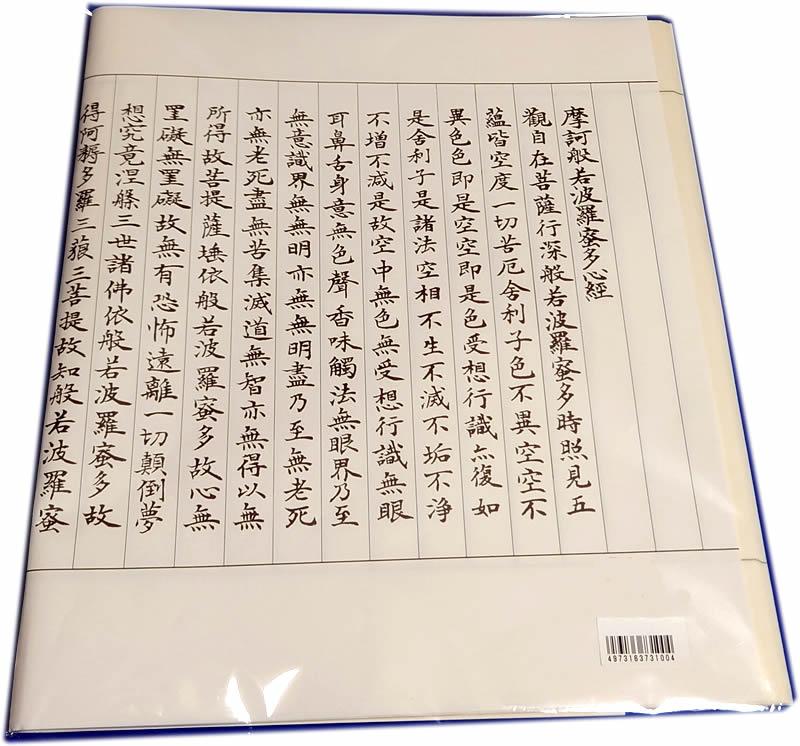 摩訶般若波羅蜜多心經
觀自在菩薩行深般若波羅蜜多時照見五
蘊皆空度一切苦厄舍利子色不異空空不
異色色即是空空即是色受想行識亦復如
是舍利子是諸法空相不生不滅不垢不浄
不増不減是故空中無色無受想行識無眼
耳鼻舌身意無色聲香味觸法無眼界乃至
無意識界無無明亦無無明盡乃至無老死
亦無老死盡無苦集滅道無智亦無得以無
所得故菩提薩埵依般若波羅蜜多故心無
罣礙無罣礙故無有恐怖遠離一切顛倒夢
想究竟涅槃三世諸佛依般若波羅蜜多故
得阿耨多羅三藐三菩提故知般若波羅蜜
4973163731004